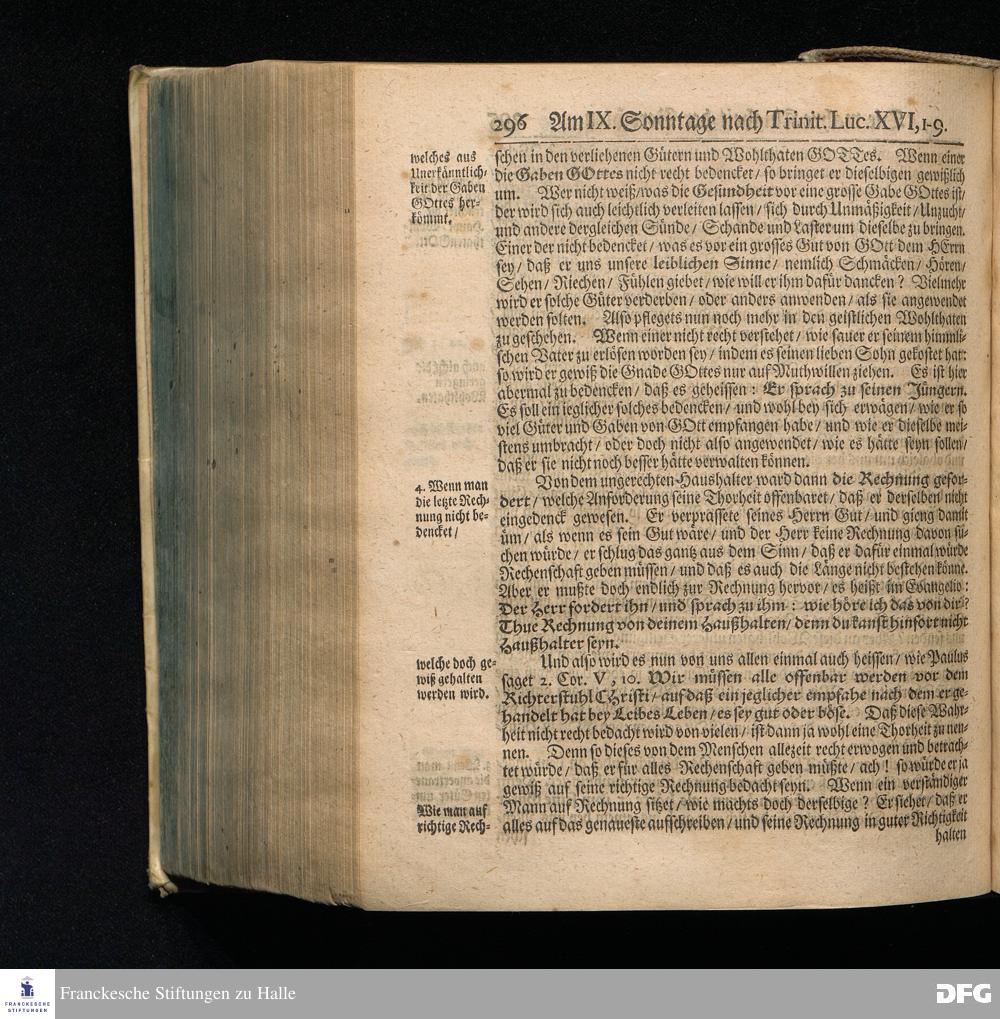 296 Am IX. Sonntage nach Trinit. Luc. XVI, 1-9.
welches aus
Unerkänntlich-
keit der Gaben
GOttes her-
kömmt.
schen in den verliehenen Gütern und Wohlthaten GOTTes. Wenn einer
die Gaben GOttes nicht recht bedencket / so bringet er dieselbigen gewißlich
um. Wer nicht weiß / was die Gesundheit vor eine grosse Gabe GOttes ist /
der wird sich auch leichtlich verleiten lassen / sich durch Unmäßigkeit / Unzucht /
und andere dergleichen Sünde / Schande und Laster um dieselbe zu bringen.
Einer der nicht bedencket / was es vor ein grosses Gut von GOtt dem HErrn
sey / daß er uns unsere leiblichen Sinne / nemlich Schmäcken / Hören /
Sehen / Riechen / Fühlen giebet / wie will er ihm dafür dancken? Vielmehr
wird er solche Güter verderben / oder anders anwenden / als sie angewendet
werden solten. Also pflegets nun noch mehr in den geistlichen Wohlthaten
zu geschehen. Wenn einer nicht recht verstehet / wie sauer er seinem himmli-
schen Vater zu erlösen worden sey / indem es seinen lieben Sohn gekostet hat:
so wird er gewiß die Gnade GOttes nur auf Muthwillen ziehen. Es ist hier
abermal zu bedencken / daß es geheissen: Er sprach zu seinen Jüngern.
Es soll ein jeglicher solches bedencken / und wohl bey sich erwägen / wie er so
viel Güter und Gaben von GOtt empfangen habe / und wie er dieselbe mei-
stens umbracht / oder doch nicht also angewendet / wie es hätte seyn sollen /
daß er sie nicht noch besser hätte verwalten können.
4. Wenn man
die letzte Rech-
nung nicht be-
dencket /
Von dem ungerechten Haushalter ward dann die Rechnung gefor-
dert / welche Anforderung seine Thorheit offenbaret / daß er derselben nicht
eingedenck gewesen. Er verprassete seines Herrn Gut / und gieng damit
üm / als wenn es sein Gut wäre / und der Herr keine Rechnung davon sü-
chen würde / er schlug das gantz aus dem Sinn / daß er dafür einmal würde
Rechenschaft geben müssen / und daß es auch die Länge nicht bestehen könne.
Aber er mußte doch endlich zur Rechnung hervor / es heißt im Evangelio:
Der Herr fordert ihn / und sprach zu ihm: wie höre ich das von dir?
Thue Rechnung von deinem Haußhalten / denn du kanst hinfort nicht
Haußhalter seyn.
welche doch ge-
wiß gehalten
werden wird.
Und also wird es nun von uns allen einmal auch heissen / wie Paulus
saget 2. Cor. V, 10. Wir müssen alle offenbar werden vor dem
Richterstuhl CHristi / auf daß ein jeglicher empfahe nach dem er ge-
handelt hat bey Leibes Leben / es sey gut oder böse. Daß diese Wahr-
heit nicht recht bedacht wird von vielen / ist dann ja wohl eine Thorheit zu nen-
nen. Denn so dieses von dem Menschen allezeit recht erwogen und betrach-
tet würde / daß er für alles Rechenschaft geben müßte / ach! so würde er ja
gewiß auf seine richtige Rechnung bedacht seyn. Wenn ein verständiger
Mann auf Rechnung sitzet / wie machts doch derselbige? Er siehet / daß er
alles auf das genaueste aufschreiben / und seine Rechnung in guter Richtigkeit
Wie man auf
richtige Rech-
halten
FRANCKESCHE
STIFTUNGEN
Franckesche Stiftungen zu Halle
DFG